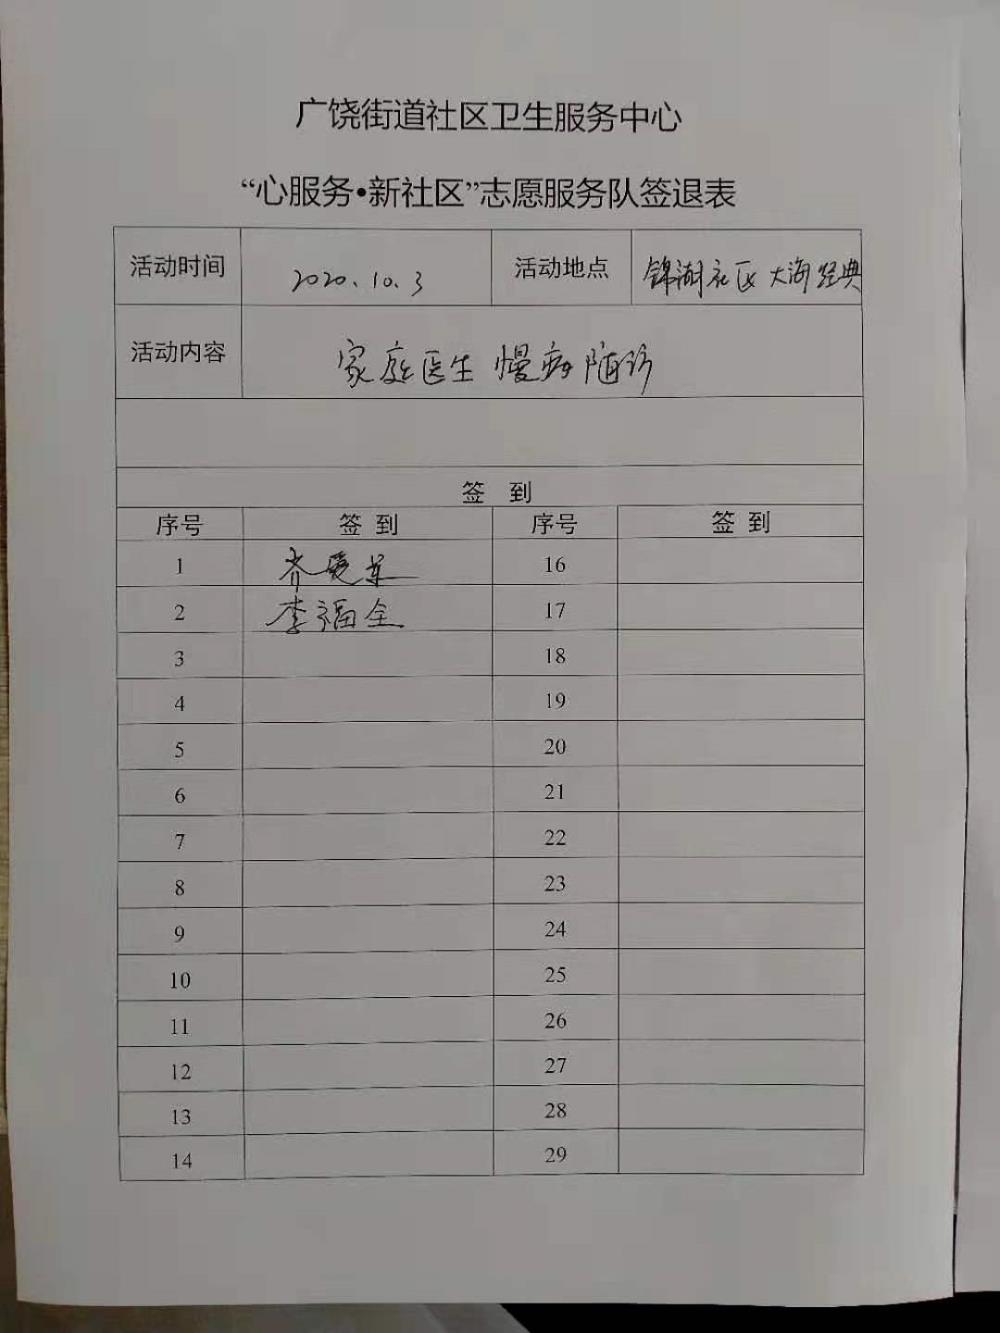 广饶街道社区卫生服务中心
“心服务•新社区”志愿服务队签退表
活动时间 2020.10.3 活动地点 锦湖社区 大海经典
活动内容 家庭医生 慢病随诊
签 到
序号 签 到 序号 签 到
1 齐爱军 16
2 李福全 17
3 18
4 19
5 20
6 21
7 22
8 23
9 24
10 25
11 26
12 27
13 28
14 29